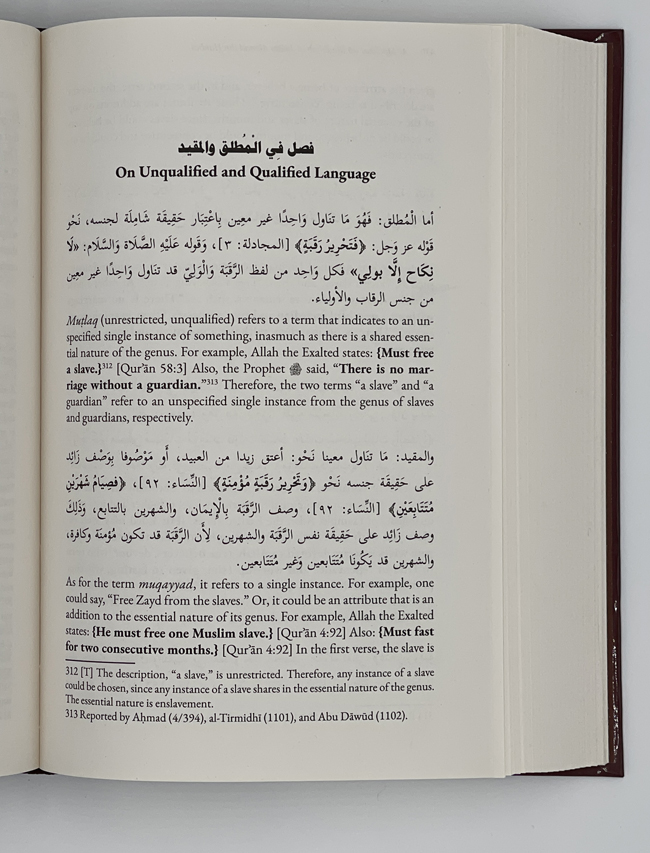 فصل فِي الْمُطلق والمقيد
On Unqualified and Qualified Language
أما الْمُطلق: فَهُوَ مَا تنَاول وَاحِدًا غير معِين بِاعْتِبَار حَقِيقَة شَامِلَة لجنسه، نَحْو
قَوْله عز وَجل: ﴿فَتَحْرِيرُ رَقَبَةٍ﴾ [المجادلة: ٣]، وَقوله عَلَيْهِ الصَّلَاة وَالسَّلَام: «لَا
نِكَاح إِلَّا بولِي» فَكل وَاحِد من لفظ الرَّقَبَة وَالْوَلِيّ قد تنَاول وَاحِدًا غير معِين
من جنس الرقاب والأولياء.
Muṭlaq (unrestricted, unqualified) refers to a term that indicates to an un-
specified single instance of something, inasmuch as there is a shared essen-
tial nature of the genus. For example, Allah the Exalted states: {Must free
a slave.}312 [Qur’ān 58:3] Also, the Prophet ﷺ said, “There is no mar-
riage without a guardian.”313 Therefore, the two terms “a slave” and “a
guardian” refer to an unspecified single instance from the genus of slaves
and guardians, respectively.
والمقيد: مَا تنَاول معينا نَحْو: أعتق زيدا من العبيد، أَو مَوْصُوفا بِوَصْف زَائِد
على حَقِيقَة جنسه نَحْو ﴿وَتَحْرِيرُ رَقَبَةٍ مُؤْمِنَةٍ﴾ [النِّسَاء: ٩٢]، ﴿فَصِيَامُ شَهْرَيْنِ
مُتَتَابِعَيْنِ﴾ [النِّسَاء: ٩٢]، وصف الرَّقَبَة بِالْإِيمَان، والشهرين بالتتابع، وَذَلِكَ
وصف زَائِد على حَقِيقَة نفس الرَّقَبَة والشهرين، لِأَن الرَّقَبَة قد تكون مُؤمنَة وكافرة،
والشهرين قد يَكُونَا مُتَتَابعين وَغير مُتَتَابعين.
As for the term muqayyad, it refers to a single instance. For example, one
could say, “Free Zayd from the slaves.” Or, it could be an attribute that is an
addition to the essential nature of its genus. For example, Allah the Exalted
states: {He must free one Muslim slave.} [Qur’ān 4:92] Also: {Must fast
for two consecutive months.} [Qur’ān 4:92] In the first verse, the slave is
312 [T] The description, “a slave,” is unrestricted. Therefore, any instance of a slave
could be chosen, since any instance of a slave shares in the essential nature of the genus.
The essential nature is enslavement.
313 Reported by Aḥmad (4/394), al-Tirmidhī (1101), and Abu Dāwūd (1102).